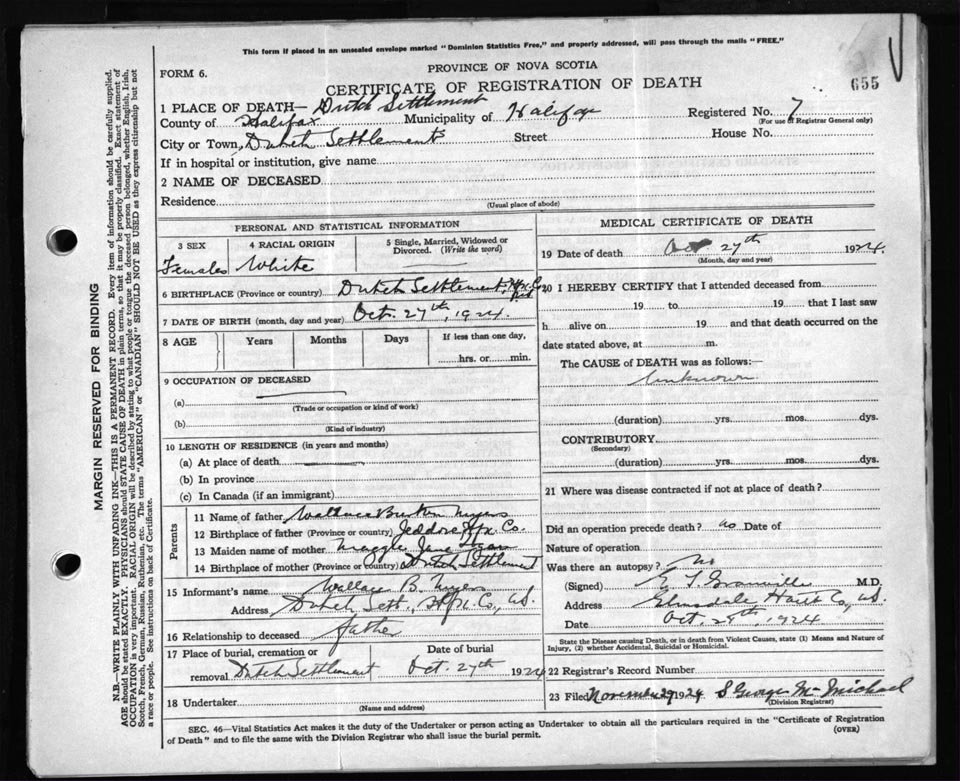 This form if placed in an unsealed envelope marked "Dominion Statistics Free," and properly addressed, will pass through the mails "FREE."
FORM 6.
PROVINCE OF NOVA SCOTIA
CERTIFICATE OF REGISTRATION OF DEATH
655
1 PLACE OF DEATH— Dutch Settlement
County of Halifax Municipality of Halifax Registered No. 7
(For use of Registrar General only)
City or Town, Dutch Settlement Street House No.
If in hospital or institution, give name
2 NAME OF DECEASED
Residence
(Usual place of abode)
PERSONAL AND STATISTICAL INFORMATION
3 SEX 4 RACIAL ORIGIN 5 Single, Married, Widowed or Divorced. (Write the word)
Female White
6 BIRTHPLACE (Province or country) Dutch Settlement, Hfx. Co.
7 DATE OF BIRTH (month, day and year) Oct. 27th, 1924.
8 AGE Years Months Days If less than one day,
hrs. or min.
9 OCCUPATION OF DECEASED
(a)
(Trade or occupation or kind of work)
(b)
(Kind of industry)
10 LENGTH OF RESIDENCE (in years and months)
(a) At place of death
(b) In province
(c) In Canada (if an immigrant)
Parents
11 Name of father Wallace Burton Myers
12 Birthplace of father (Province or country) Jeddore Hfx. Co.
13 Maiden name of mother Maggie Jane
14 Birthplace of mother (Province or country) Dutch Settlement
15 Informant's name Wallace B. Myers
Address Dutch Sett., Hfx. Co., N.S.
16 Relationship to deceased father
17 Place of burial, cremation or removal Dutch Settlement Date of burial Oct. 27th 1924
18 Undertaker
(Name and address)
MEDICAL CERTIFICATE OF DEATH
19 Date of death Oct 27th 1924.
(Month, day and year)
20 I HEREBY CERTIFY that I attended deceased from
19 to 19 that I last saw
h alive on 19 and that death occurred on the
date stated above, at m.
The CAUSE of DEATH was as follows:—
Unknown
(duration) yrs. mos. dys.
CONTRIBUTORY
(Secondary)
(duration) yrs. mos. dys.
21 Where was disease contracted if not at place of death?
Did an operation precede death? No Date of
Nature of operation
Was there an autopsy? No
(Signed) Granville M.D.
Address Elmsdale Hants Co., N.S.
Date Oct. 29th, 1924
State the Disease causing Death, or in death from Violent Causes, state (1) Means and Nature of Injury, (2) whether Accidental, Suicidal or Homicidal.
22 Registrar's Record Number
23 Filed November 29 1924 S George McMichael
(Division Registrar)
SEC. 46—Vital Statistics Act makes it the duty of the Undertaker or person acting as Undertaker to obtain all the particulars required in the "Certificate of Registration
of Death" and to file the same with the Division Registrar who shall issue the burial permit. (OVER)
MARGIN RESERVED FOR BINDING
N.B.—WRITE PLAINLY WITH UNFADING INK—THIS IS A PERMANENT RECORD. Every item of information should be carefully supplied.
AGE should be stated EXACTLY. PHYSICIANS should STATE CAUSE OF DEATH in plain terms, so that it may be properly classified. Exact statement of
OCCUPATION is very important. RACIAL ORIGIN will be described by stating to what people or tongue the deceased person belonged, whether English, Irish,
Scotch, French, German, Russian, Ruthenian, etc. The terms "AMERICAN" or "CANADIAN" SHOULD NOT BE USED as they express citizenship but not
a race or people. See instructions on back of Certificate.